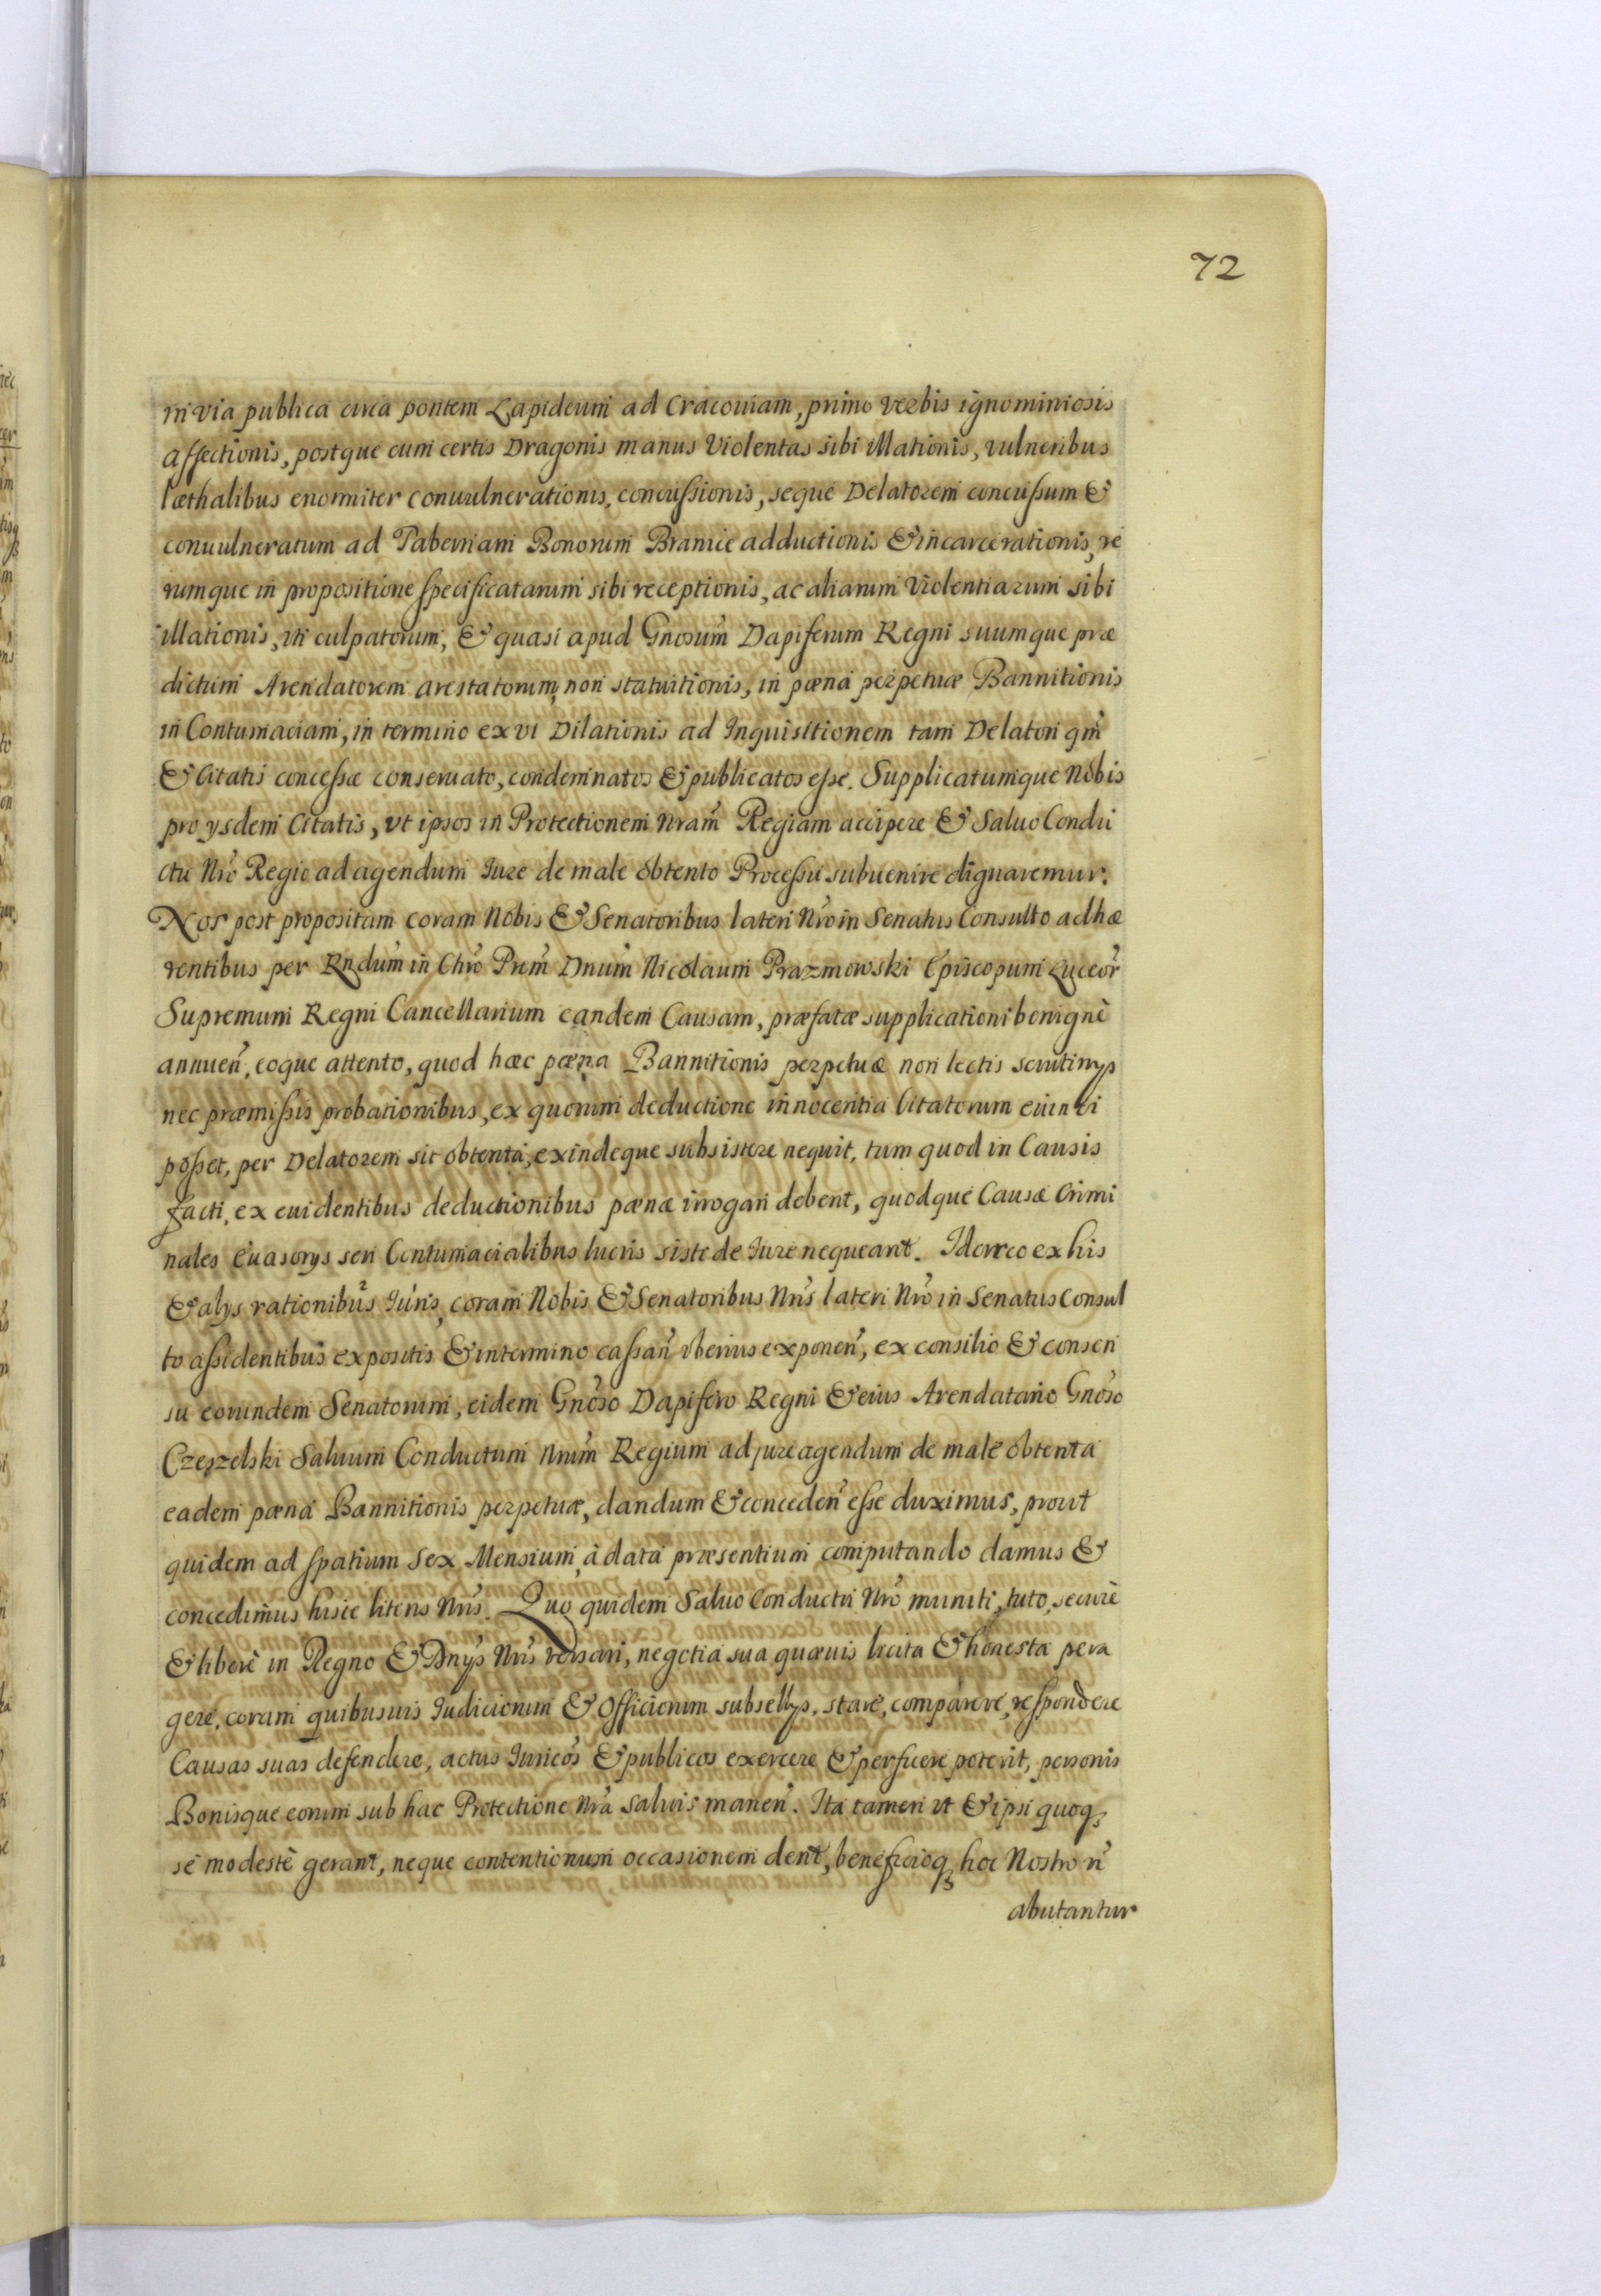 72
in via publica circa pontem Lapideum ad Cracouiam, primo verbis ignominiosis
affectionis, postque cum certis Dragonis manus Violentas sibi illationis, vulneribus
læthalibus enormiter conuulnerationis, concussionis, seque Delatorem concussum &
conuulneratum ad Tabernam Bonorum Branice adductionis & incarcerationis, re
rumque in propositione specificatarum sibi receptionis, ac aliarum Violentiarum sibi
illationis, uti culpatorum, & quasi apud Gnosum̃ Dapiferum Regni suumque præ
dictum Arendatorem arestatorum, non statuitionis, in pœna perpetuæ Bannitionis
in Contumaciam, in termino ex vi Dilationis ad Inquisitionem tam Delatori qm̃
& Citatis concessæ conseruato, condemnatos & publicatos esse. Supplicatumque Nobis
pro ysdem Citatis, vt ipsos in Protectionem nram̃ Regiam accipere & Saluo Condu
ctu Nrõ Regio ad agendum Iure de male obtento Processu subuenire dignaremur.
Nos post propositam coram Nobis & Senatoribus lateri Nrõ in Senatus Consulto adhæ
rentibus per Rndum̃ in Chrõ Prem̃ Dnum̃ Nicolaum Prazmowski Episcopum Luceor̃
Supremum Regni Cancellarium eandem Causam, præfatæ supplicationi benignè
annuen̉, eoque attento, quod hæc pœna Bannitionis perpetuæ non lectis scrutinys
nec præmissis probationibus, ex quorum deductione innocentia Citatorum euinci
posset, per Delatorem sit obtenta, exindeque subsistere nequit, tum quod in Causis
facti, ex euidentibus deductionibus pœnæ irrogari debent, quodque Causæ Crimi
nales Euasorys seu Contumacialibus lucris siste de Iure nequeant. Idcirco ex his
& alys rationibus Iuris, coram Nobis & Senatoribus Nrĩs lateri Nrõ in Senatus Consul
to assidentibus expositis & in termino cassan̉ vberius exponen̉, ex consilio & consen
su eorundem Senatorum, eidem Gnõso Dapifero Regni & eius Arendatario Gnõso
Czeszelski Saluum Conductum Nrum̃ Regium ad jure agendum de malè obtenta
eadem pœna Bannitionis perpetuæ, dandum & conceden̉ esse duximus, prout
quidem ad spatium Sex Mensium, à data præsentium computando damus &
concedimus hisce literis Nrĩs. Quo quidem Saluo Conductu Nrõ muniti, tuto, securè
& liberè in Regno & Dnys Nrĩs versari, negotia sua quæuis licita & honesta pera
gere, coram quibusuis Iudiciorum & Officiorum subsellys, stare, comparere, respondere
Causas suas defendere, actus Iuricos & publicos exercere & perficere poterit, personis
Bonisque eorum sub hac Protectione Nrã saluis manen̉. Ita tamen vt & ipsi quoq3
se modestè gerant, neque contentionum occasionem dent, beneficioq3 hoc Nostro ñ
abutantur